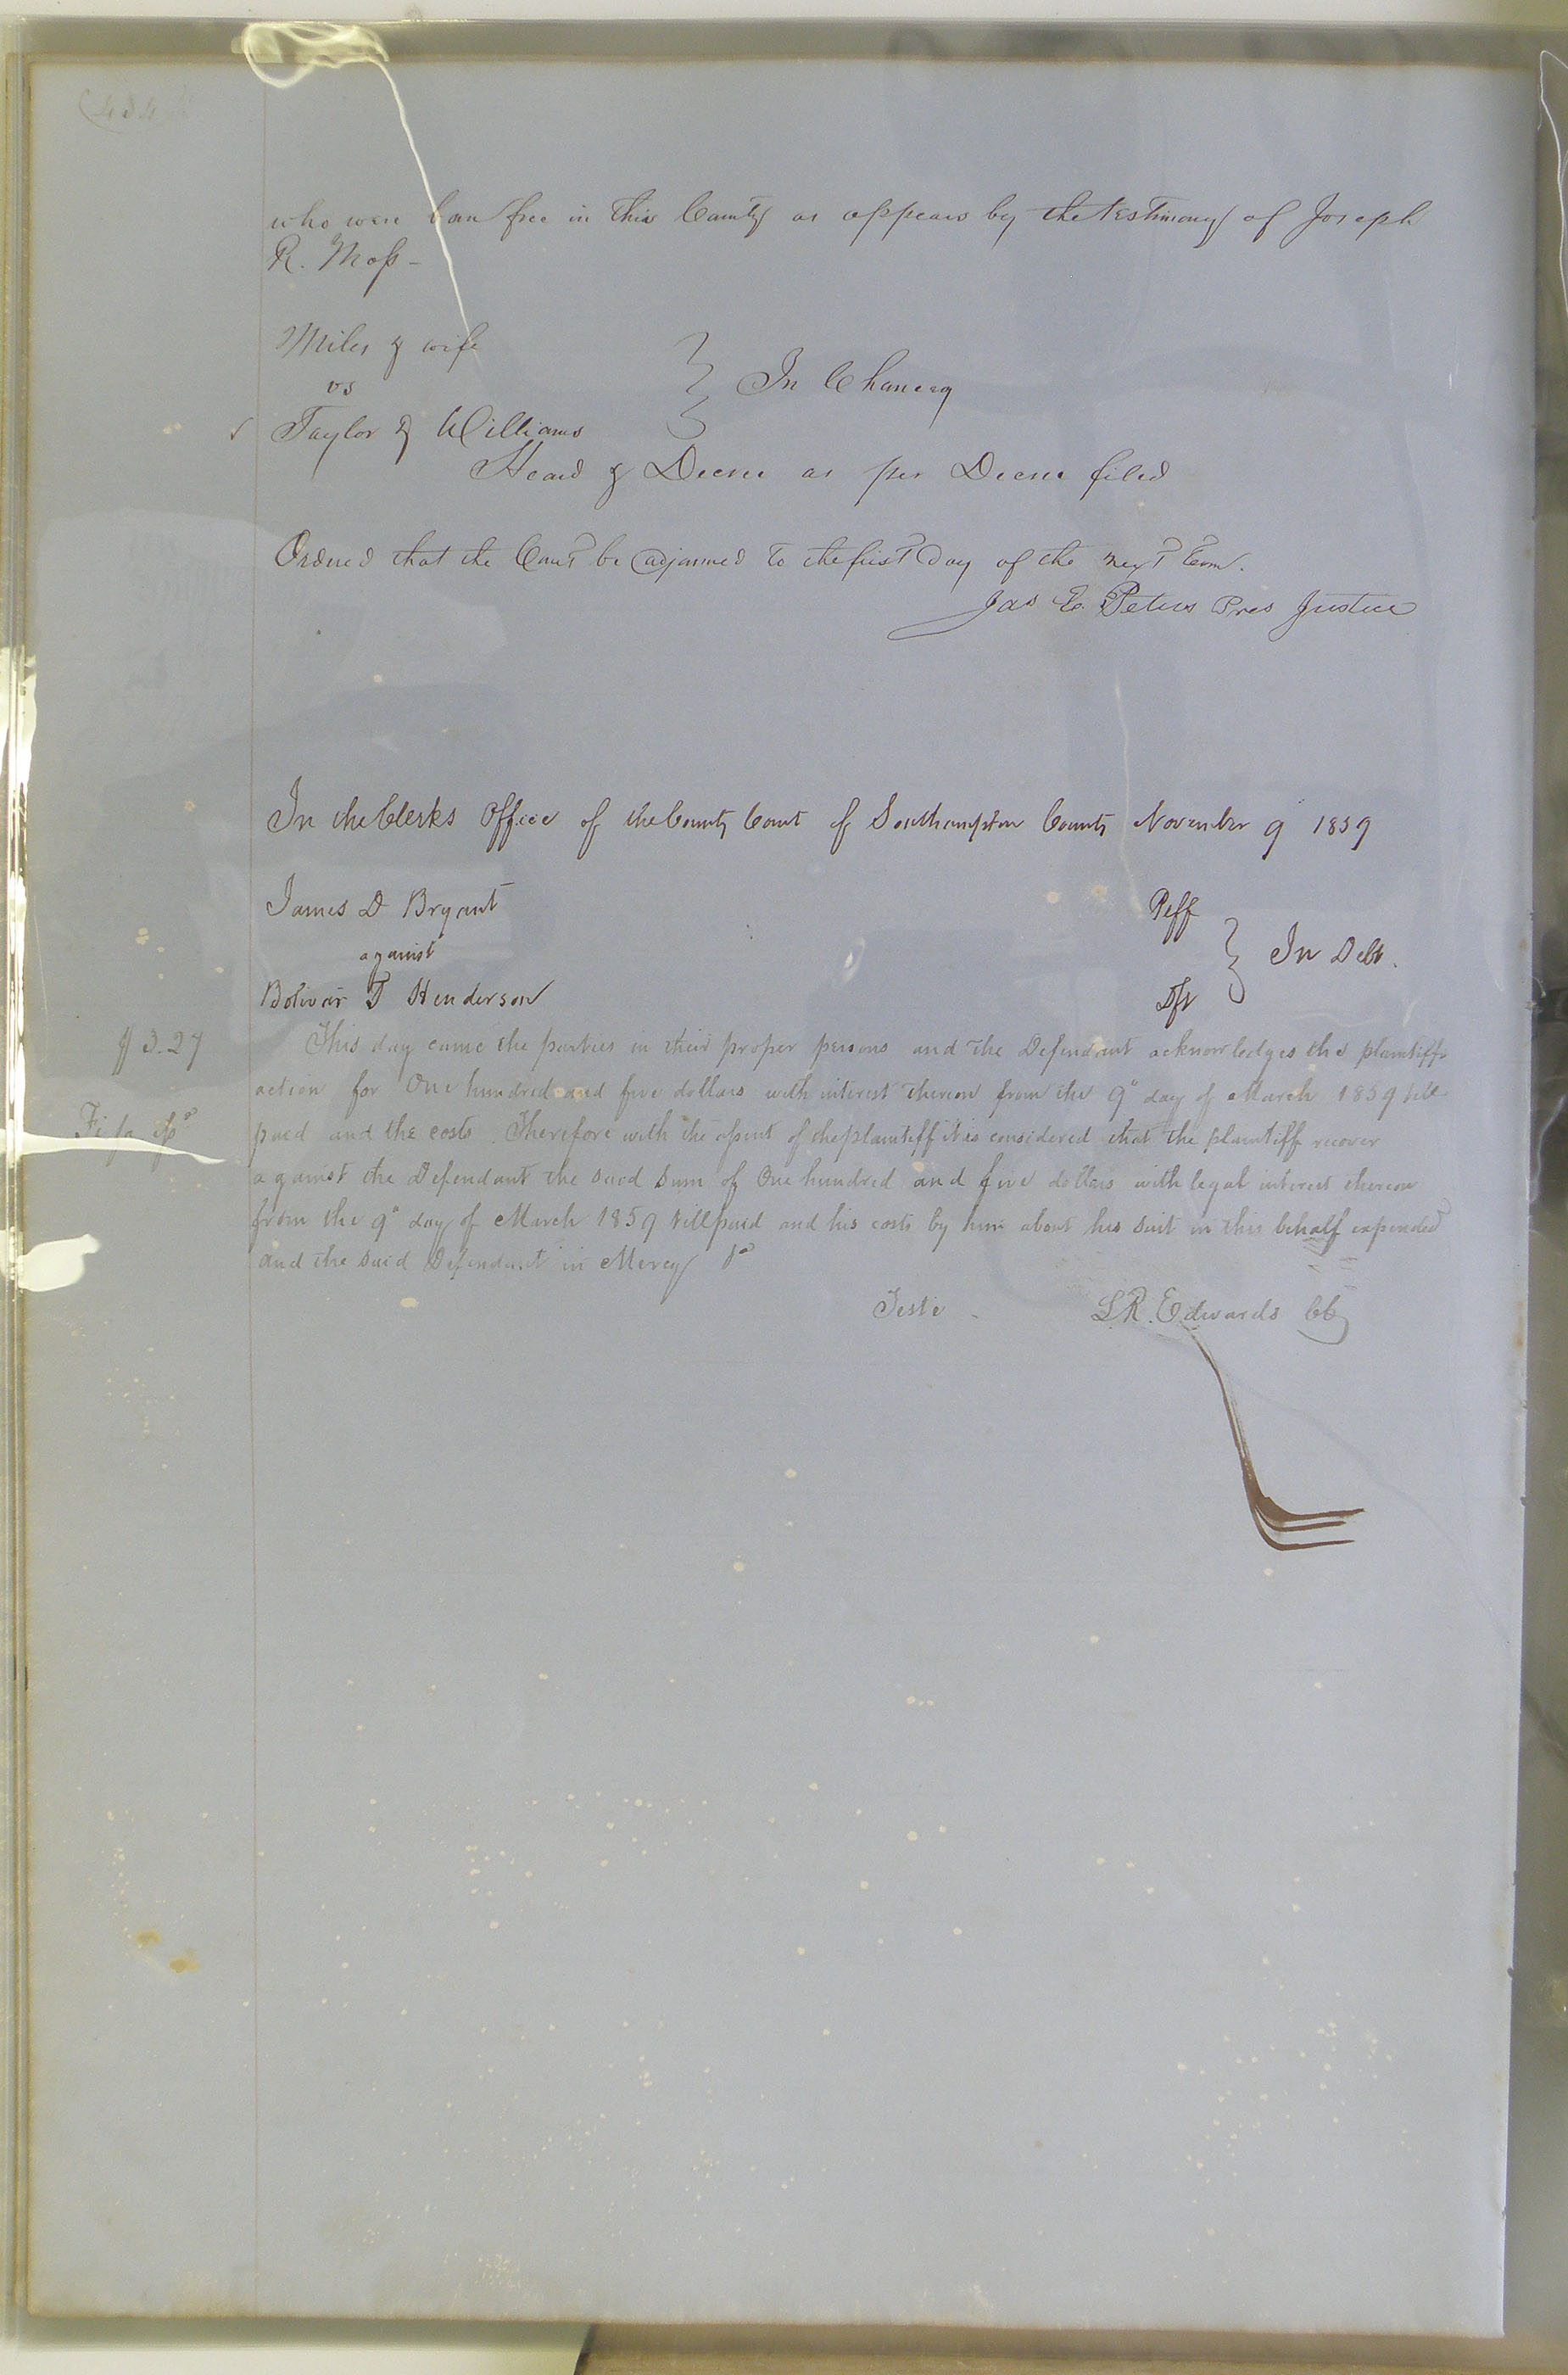 (434
who were born free in this County as appears by the testimony of Joseph
R. Moss -
Miles & wife
vs
Taylor & Williams
} In Chancery
Heard & Decree as per Decree filed
Ordered that the Court be adjourned to the first Day of the next Term.
Jas E. Peters Pres Justice
In the Clerks Office of the County Court of Southampton County November 9 1859
James D Bryant Plff
against } In Debt.
Bolivar T Henderson Dft
$ 3.27
This day came the parties in their proper persons and the Defendant acknowledges the plaintiffs
action for One hundred and five dollars with interest thereon from the 9° day of March 1859 till
Fi fa
paid and the costs. Therefore with the assent of the plaintiff it is considered that the plaintiff recover
against the Defendant the said sum of One hundred and five dollars with legal interest thereon
from the 9° day of March 1859 till paid and his costs by him about his suit in this behalf expended
and the said Defendant in Mercy &c
Teste - L.R. Edwards CC